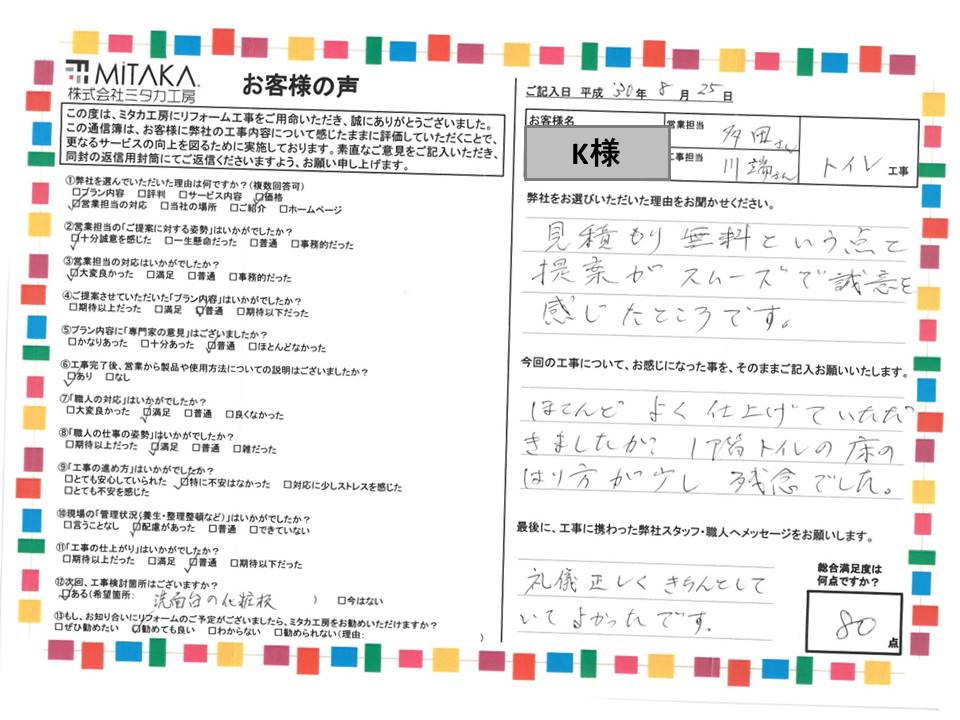 MiTAKA.
株式会社ミタカ工房
お客様の声
この度は、ミタカ工房にリフォーム工事をご用命いただき、誠にありがとうございました。
この通信簿は、お客様に弊社の工事内容について感じたままに評価していただくことで、
更なるサービスの向上を図るために実施しております。素直なご意見をご記入いただき、
同封の返信用封筒にてご返信くださいますよう、お願い申し上げます。
①弊社を選んでいただいた理由は何ですか？(複数回答可)
□プラン内容 □評判 □サービス内容 ☑価格
☑営業担当の対応 □当社の場所 □ご紹介 □ホームページ
②営業担当の「ご提案に対する姿勢」はいかがでしたか？
☑十分誠意を感じた □一生懸命だった □普通 □事務的だった
③営業担当の対応はいかがでしたか？
☑大変良かった □満足 □普通 □事務的だった
④ご提案させていただいた「プラン内容」はいかがでしたか？
□期待以上だった □満足 ☑普通 □期待以下だった
⑤プラン内容に「専門家の意見」はございましたか？
□かなりあった □十分あった ☑普通 □ほとんどなかった
⑥工事完了後、営業から製品や使用方法についての説明はございましたか？
☑あり □なし
⑦「職人の対応」はいかがでしたか？
□大変良かった ☑満足 □普通 □良くなかった
⑧「職人の仕事の姿勢」はいかがでしたか？
□期待以上だった ☑満足 □普通 □雑だった
⑨「工事の進め方」はいかがでしたか？
□とても安心していられた ☑特に不安はなかった □対応に少しストレスを感じた
□とても不安を感じた
⑩現場の「管理状況(養生・整理整頓など)」はいかがでしたか？
□言うことなし ☑配慮があった □普通 □できていない
⑪「工事の仕上がり」はいかがでしたか？
□期待以上だった □満足 ☑普通 □期待以下だった
⑫次回、工事検討箇所はございますか？
☑ある(希望箇所: 洗面台の化粧板 ) □今はない
⑬もし、お知り合いにリフォームのご予定がございましたら、ミタカ工房をお勧めいただけますか？
□ぜひ勧めたい ☑勧めても良い □わからない □勧められない(理由: )
ご記入日 平成 '30 年 8 月 25 日
お客様名
K様
営業担当 多田さん
工事担当 川端さん
トイレ 工事
弊社をお選びいただいた理由をお聞かせください。
見積もり無料という点と
提案がスムーズで誠意を
感じたところです。
今回の工事について、お感じになった事を、そのままご記入お願いいたします。
ほとんど よく仕上げていただ
きましたが、1階トイレの床の
はり方が少し 残念でした。
最後に、工事に携わった弊社スタッフ・職人へメッセージをお願いします。
礼儀正しくきちんとして
いてよかったです。
総合満足度は
何点ですか？
80
点